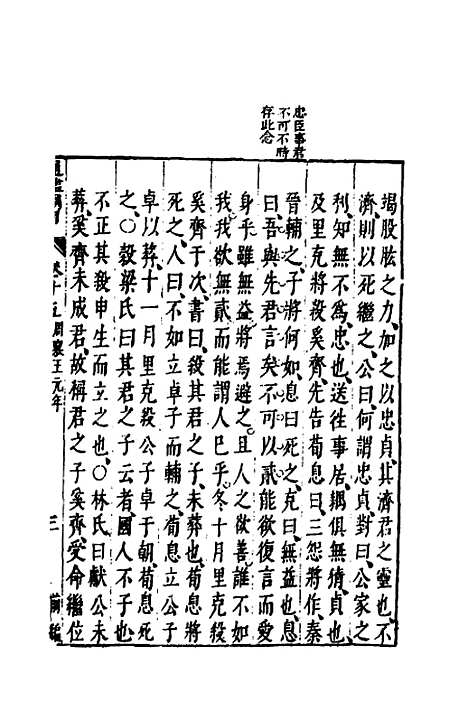 忠臣事君
不可不時
存此念
竭股肱之力、加之以忠貞、其濟君之靈也、不
濟、則以死繼之、公曰、何謂忠貞、對曰、公家之
利、知無不為、忠也、送往事居、耦俱無猜、貞也、
及里克將殺奚齊、先告荀息曰、三怨將作、秦
晉輔之、子將何如、息曰、死之、克曰、無益也、息
曰、吾與先君言矣、不可以貳、能欲復言而愛
身乎、雖無益、將焉避之、且人之欲善、誰不如
我、我欲無貳、而能謂人已乎、冬十月、里克殺
奚齊于次、書曰、殺其君之子、未葬也、荀息將
死之、人曰、不如立卓子而輔之、荀息立公子
卓以葬、十一月、里克殺公子卓于朝、荀息死
之、○穀梁氏曰、其君之子云者、國人不子也、
不正其殺申生而立之也、○林氏曰、獻公未
葬、奚齊未成君、故稱君之子奚齊、受命繼位
卷十五周襄王元年
三
前編